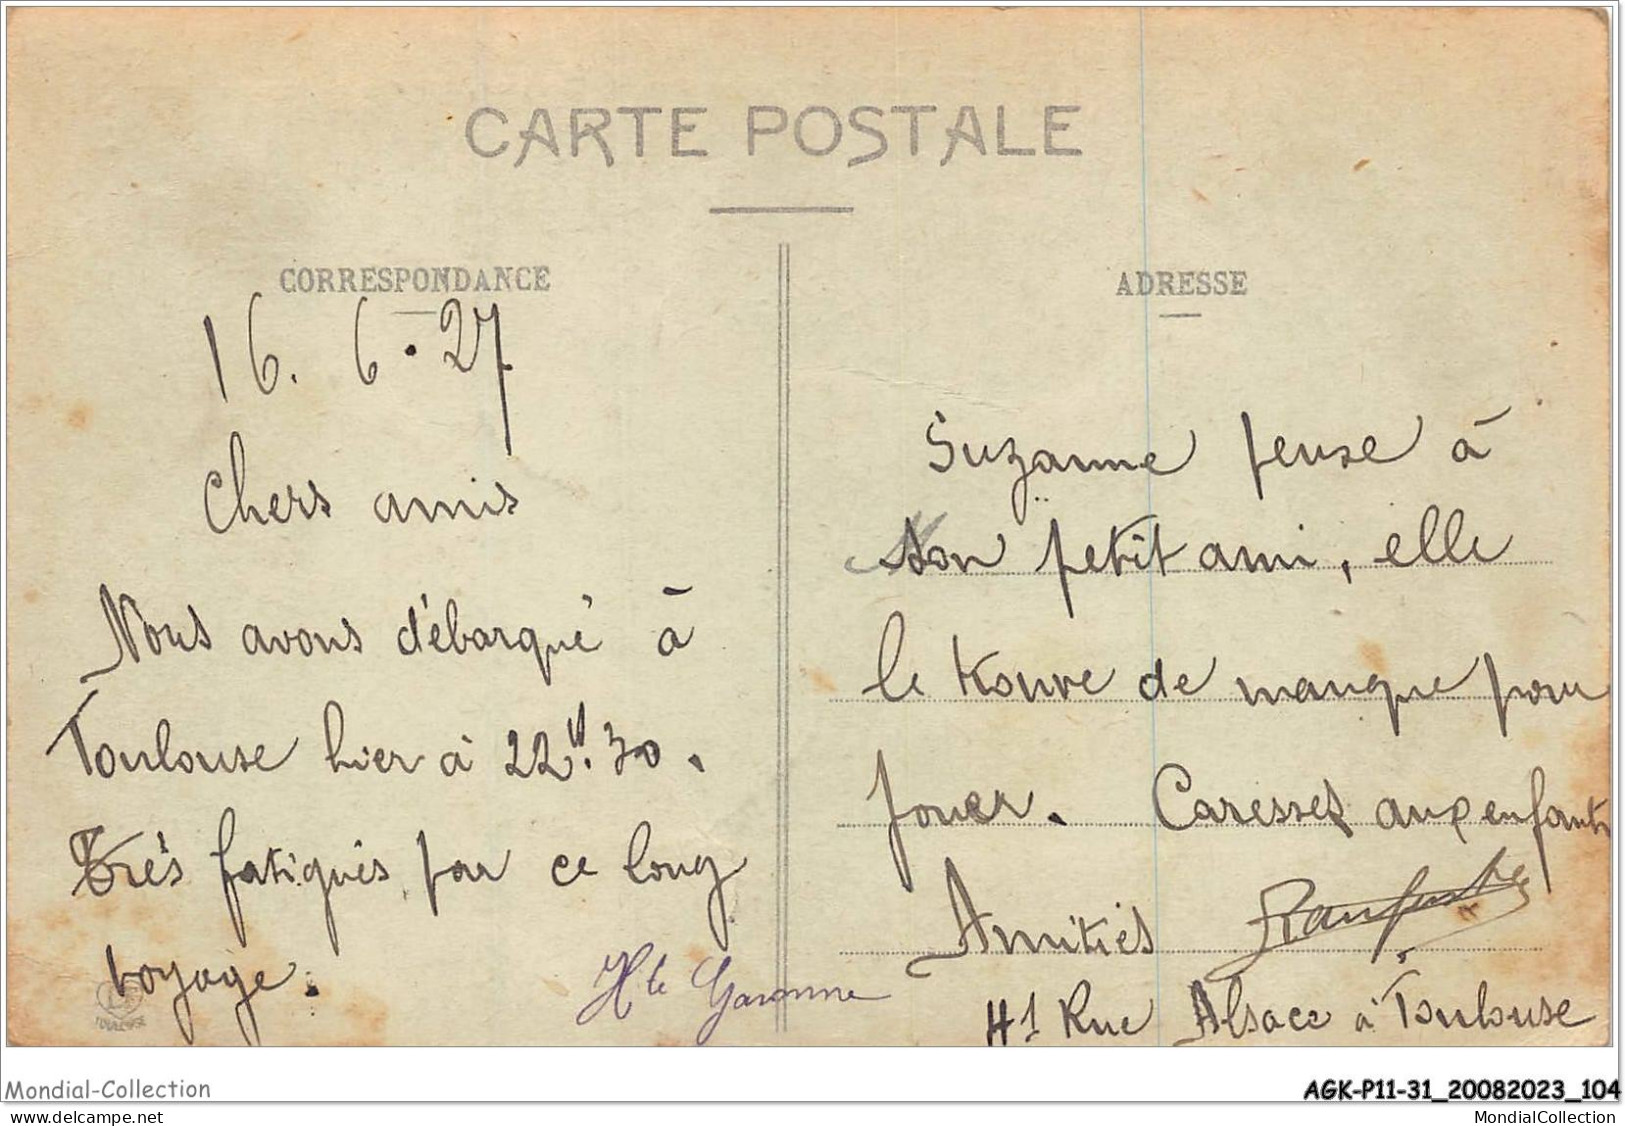 CARTE POSTALE
CORRESPONDANCE
16. 6. 27
Chers amis
Nous avons débarqué à
Toulouse hier à 22H.30.
Très fatigués par ce long
voyage.
Hte Garonne
TOULOUSE
ADRESSE
Suzanne pense à
son petit ami, elle
le trouve de manque pour
jouer. Caresses aux enfants
Amitiés
41 Rue Alsace à Toulouse
Mondial-Collection
AGK-P11-31_20082023_104
www.delcampe.net
MondialCollection